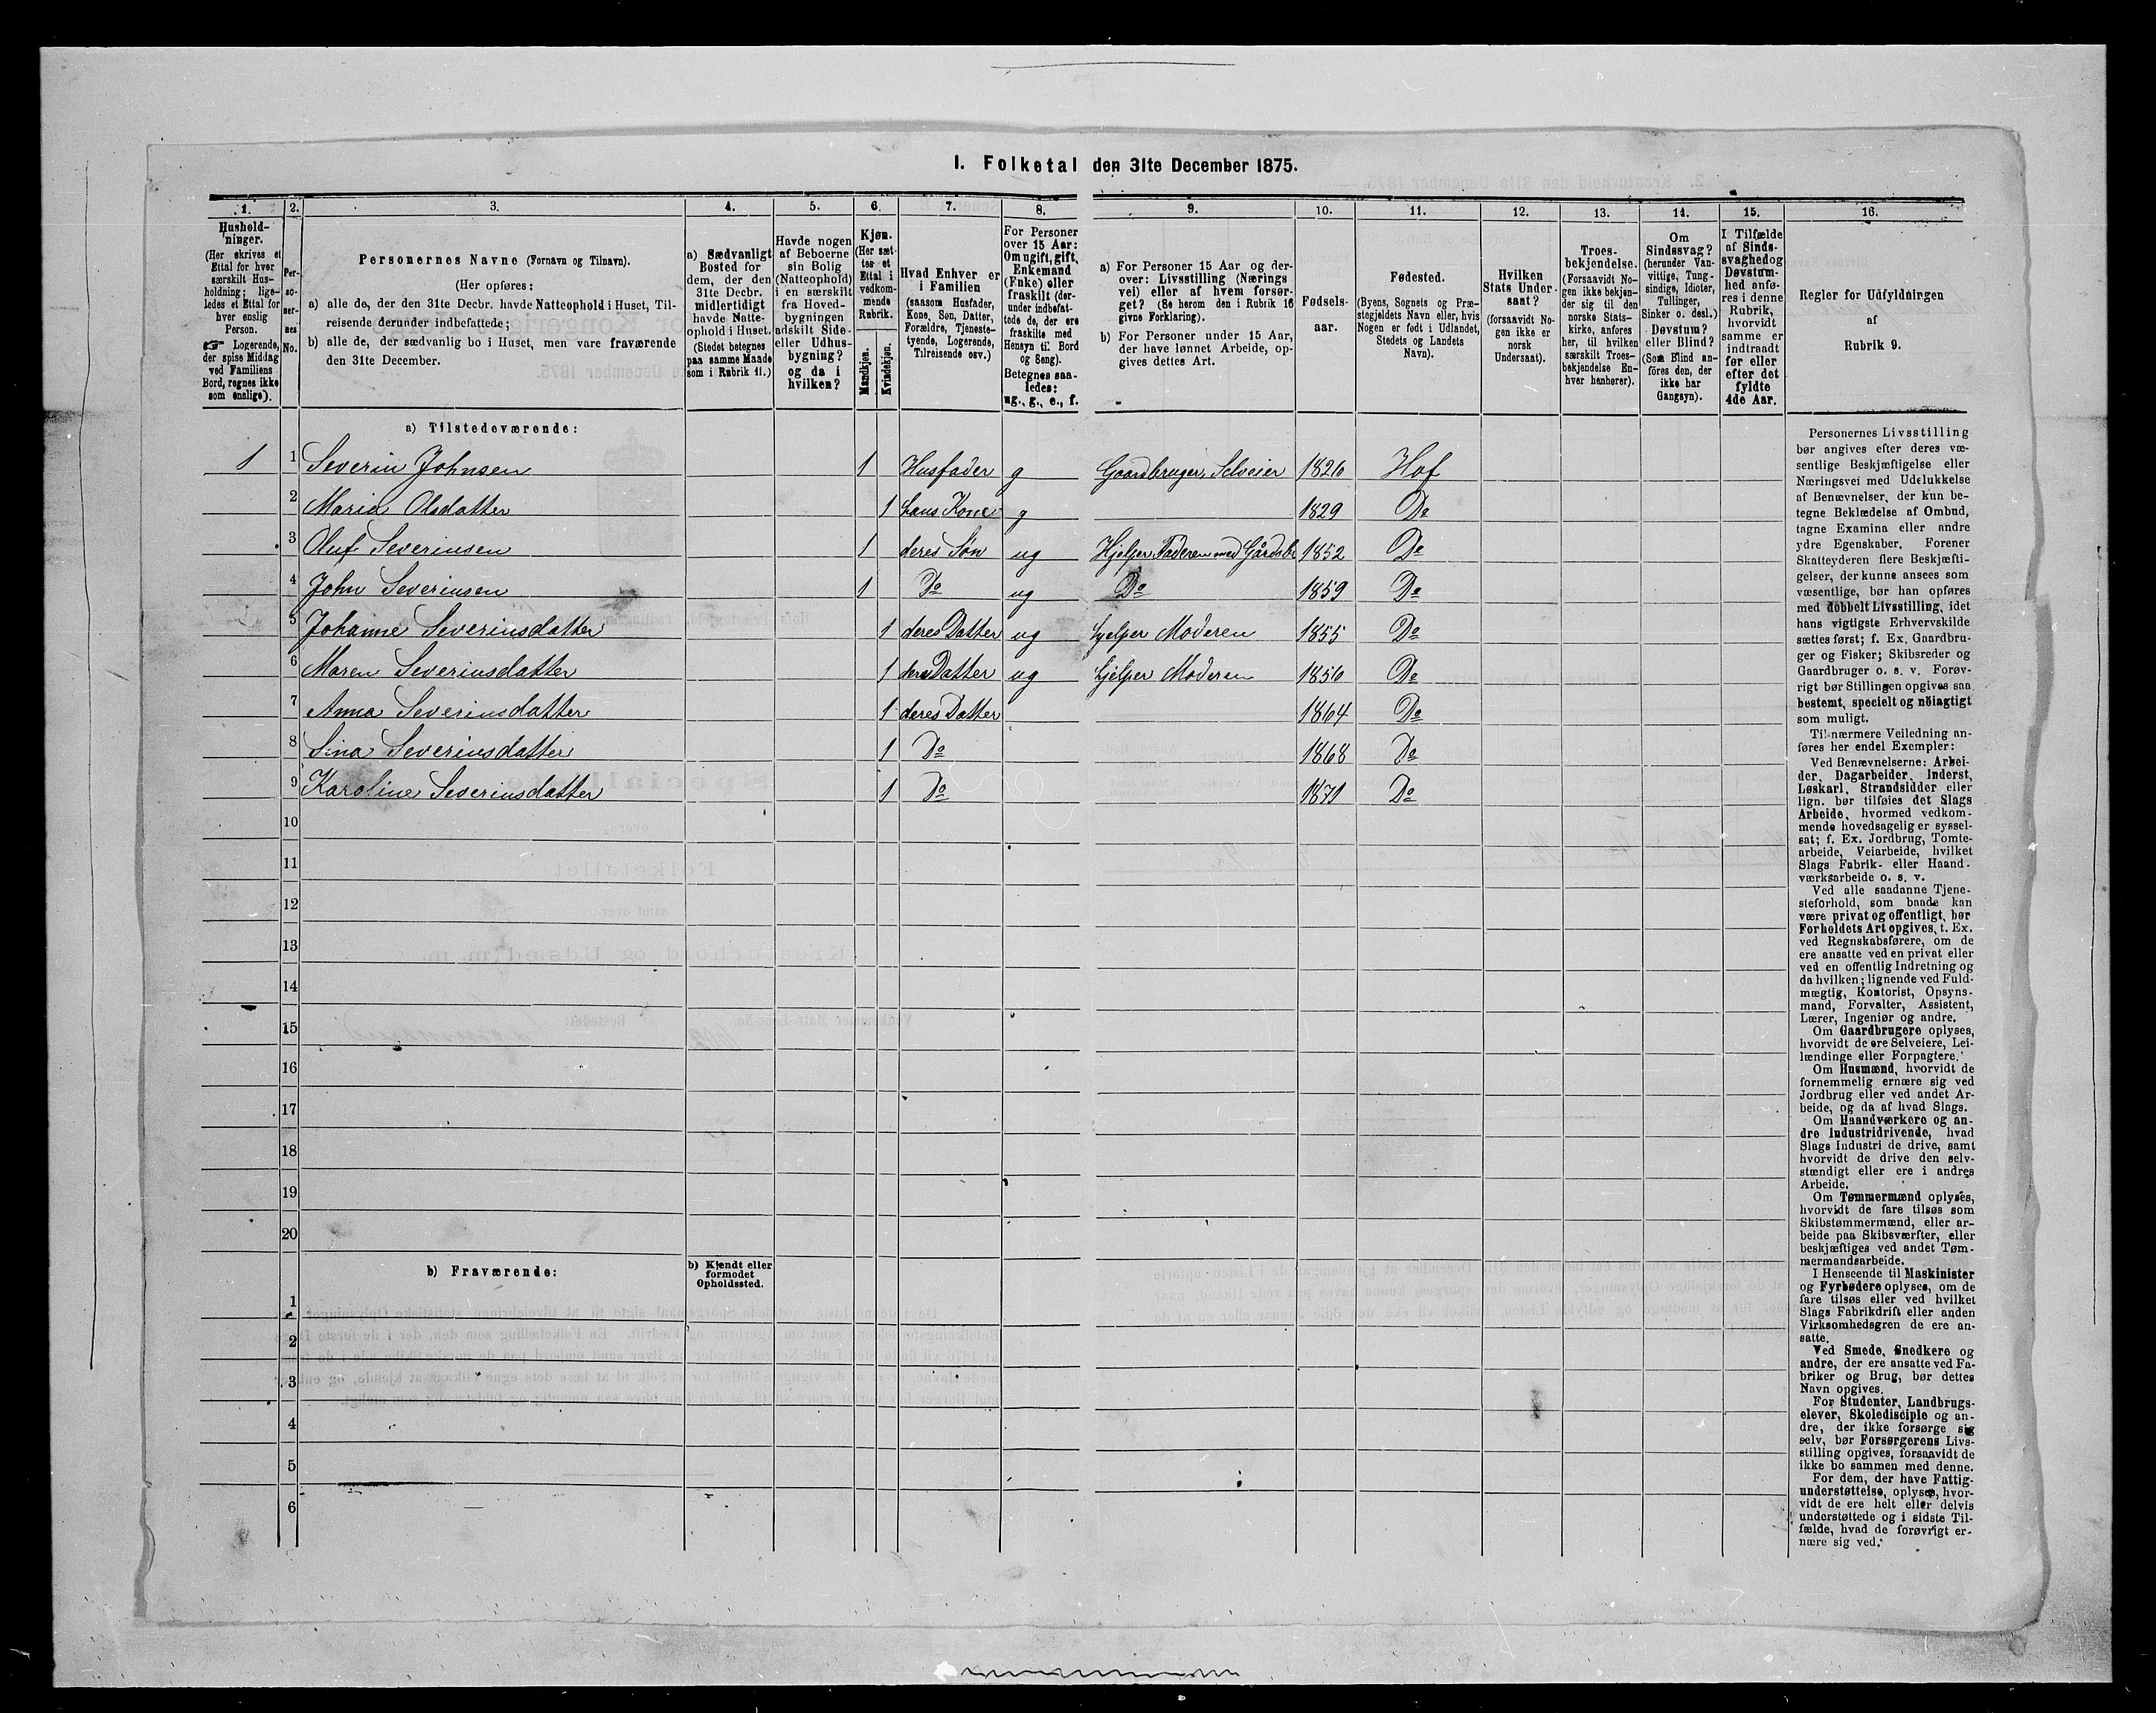 I. Folketal den 31te December 1875.
1. 2. 3. 4. 5. 6. 7. 8. 9. 10. 11. 12. 13. 14. 15. 16.
Hushold-
ninger.
(Her skrives et
Ettal for hver
særskilt Hus-
holdning; lige-
ledes et Ettal for
hver enslig
Person.
☞ Logerende,
der spise Middag
ved Familiens
Bord, regnes ikke
som enslige).
Per-
so-
ner-
nes
No.
Personernes Navne (Fornavn og Tilnavn).
(Her opføres:
a) alle de, der den 31te Decbr. havde Natteophold i Huset, Til-
reisende derunder indbefattede;
b) alle de, der sædvanlig bo i Huset, men vare fraværende
den 31te December.
a) Sædvanligt
Bosted for
dem, der den
31te Decbr.
midlertidigt
havde Natte-
ophold i Huset.
(Stedet betegnes
paa samme Maade
som i Rubrik 11.)
Havde nogen
af Beboerne
sin Bolig
(Natteophold)
i en særskilt
fra Hoved-
bygningen
adskilt Side-
eller Udhus-
bygning?
og da i
hvilken?
Kjøn.
(Her sæt-
tes et
Ettal i
vedkom-
mende
Rubrik.
Mandkjøn.
Kvindekjøn.
Hvad Enhver er
i Familien
(saasom Husfader,
Kone, Søn, Datter,
Forældre, Tjeneste-
tyende, Logerende,
Tilreisende osv.)
For Personer
over 15 Aar:
Om ugift, gift,
Enkemand
(Enke) eller
fraskilt (der-
under indbefat-
tede de, der ere
fraskilte med
Hensyn til Bord
og Seng).
Betegnes saa-
ledes:
ug., g., e., f.
a) For Personer 15 Aar og der-
over: Livsstilling (Nærings
vei) eller af hvem forsør-
get? (Se herom den i Rubrik 16
givne Forklaring).
b) For Personer under 15 Aar,
der have lønnet Arbeide, op-
gives dettes Art.
Fødsels-
aar.
Fødested.
(Byens, Sognets og Præ-
stegjeldets Navn eller, hvis
Nogen er født i Udlandet,
Stedets og Landets
Navn).
Hvilken
Stats Under-
saat?
(forsaavidt No-
gen ikke er
norsk
Undersaat).
Troes-
bekjendelse.
(Forsaavidt No-
gen ikke bekjen-
der sig til den
norske Stats-
kirke, anføres
her, til hvilken
særskilt Troes-
bekjendelse En-
hver henhører).
Om
Sindssvag?
(herunder Van-
vittige, Tung-
sindige, Idioter,
Tullinger,
Sinker o. desl.)
Døvstum?
eller Blind?
(Som Blind an-
føres den, der
ikke har
Gangsyn).
I Tilfælde
af Sinds-
svaghed og
Døvstum-
hed anfø-
res i denne
Rubrik,
hvorvidt
samme er
indtraadt
før eller
efter det
fyldte
4de Aar.
Regler for Udfyldningen
af
Rubrik 9.
a) Tilstedeværende:
1 1 Severin Johnsen 1 Husfader g Gaardbruger, Selveier 1826 Hof
2 Maria Olsdatter 1 hans Kone g 1829 Do
3 Oluf Severinsen 1 deres Søn ug Hjelper Faderen med Gårdsbr 1852 Do
4 John Severinsen 1 Do ug Do 1859 Do
5 Johanne Severinsdatter 1 deres Datter ug hjelper Moderen 1855 Do
6 Maren Severinsdatter 1 deres Datter ug hjelper Moderen 1856 Do
7 Anna Severinsdatter 1 deres Datter 1864 Do
8 Sina Severinsdatter 1 Do 1868 Do
9 Karoline Severinsdatter 1 Do 1871 Do
10
11
12
13
14
15
16
17
18
19
20
b) Fraværende:
b) Kjendt eller
formodet
Opholdssted.
1
2
3
4
5
6
Personernes Livsstilling
bør angives efter deres væ-
sentlige Beskjæftigelse eller
Næringsvei med Udelukkelse
af Benævnelser, der kun be-
tegne Beklædelse af Ombud,
tagne Examina eller andre
ydre Egenskaber. Forener
Skatteyderen flere Beskjæfti-
gelser, der kunne ansees som
væsentlige, bør han opføres
med dobbelt Livsstilling, idet
hans vigtigste Erhvervskilde
sættes først; f. Ex. Gaardbru-
ger og Fisker; Skibsreder og
Gaardbruger o. s. v. Forøv-
rigt bør Stillingen opgives saa
bestemt, specielt og nøiagtigt
som muligt.
Til nærmere Veiledning an-
føres her endel Exempler:
Ved Benævnelserne: Arbei-
der, Dagarbeider, Inderst,
Løskarl, Strandsidder eller
lign. bør tilføies det Slags
Arbeide, hvormed vedkom-
mende hovedsagelig er syssel-
sat; f. Ex. Jordbrug, Tomte-
arbeide, Veiarbeide, hvilket
Slags Fabrik- eller Haand-
værksarbeide o. s. v.
Ved alle saadanne Tjene-
steforhold, som baade kan
være privat og offentligt, bør
Forholdets Art opgives, t. Ex.
ved Regnskabsførere, om de
ere ansatte ved en privat eller
ved en offentlig Indretning og
da hvilken; lignende ved Fuld-
mægtig, Kontorist, Opsyns-
mand, Forvalter, Assistent,
Lærer, Ingeniør og andre.
Om Gaardbrugere oplyses,
hvorvidt de ere Selveiere, Lei-
lændinge eller Forpagtere.
Om Husmænd, hvorvidt de
fornemmelig ernære sig ved
Jordbrug eller ved andet Ar-
beide, og da af hvad Slags.
Om Haandværkere og an-
dre Industridrivende, hvad
Slags Industri de drive, samt
hvorvidt de drive den selv-
stændigt eller ere i andres
Arbeide.
Om Tømmermænd oplyses,
hvorvidt de fare tilsøs som
Skibstømmermænd, eller ar-
beide paa Skibsværfter, eller
beskjæftiges ved andet Tøm-
mermandsarbeide.
I Henseende til Maskinister
og Fyrbødere oplyses, om de
fare tilsøs eller ved hvilket
Slags Fabrikdrift eller anden
Virksomhedsgren de ere an-
satte.
Ved Smede, Snedkere og
andre, der ere ansatte ved Fa-
briker og Brug, bør dettes
Navn opgives.
For Studenter, Landbrugs-
elever, Skoledisciple og an-
dre, der ikke forsørge sig
selv, bør Forsørgerens Livs-
stilling opgives, forsaavidt de
ikke bo sammen med denne.
For dem, der have Fattig-
understøttelse, oplyses, hvor-
vidt de ere helt eller delvis
understøttede og i sidste Til-
fælde, hvad de forøvrigt er-
nære sig ved.